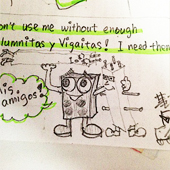 on't use me without enough
lumnitas y Vigaitas! I need them
is
amigos!